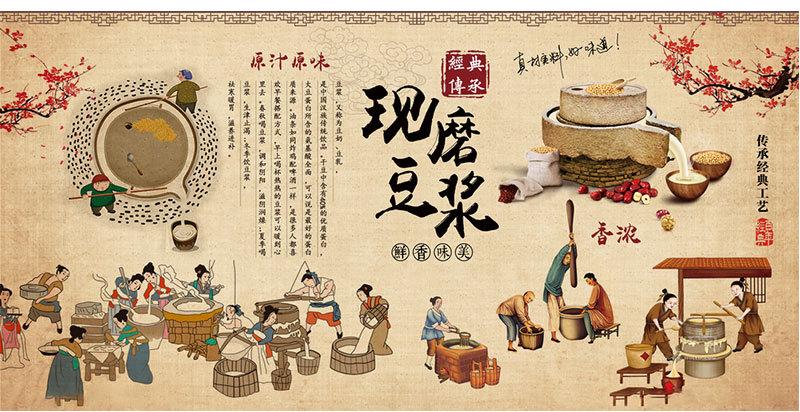 原汁原味
豆浆，又称为豆奶，豆乳。
是中国汉族传统饮品，干豆中含有40%的优质蛋白，
大豆蛋白所含的氨基酸全面，可以说是最好的蛋白
质来源，油条如同炸鸡配啤酒一样，是很多人都喜
欢早餐搭配方式，早上喝杯热热的豆浆可以暖到心
里去，春秋喝豆浆，调和阴阳，滋阴润燥；夏季喝
豆浆，生津止渴；冬季饮豆浆，
祛寒暖胃，滋养进补。
經典
傳承
现磨豆浆
鲜香味美
真材实料，好味道！
传承经典工艺
香浓